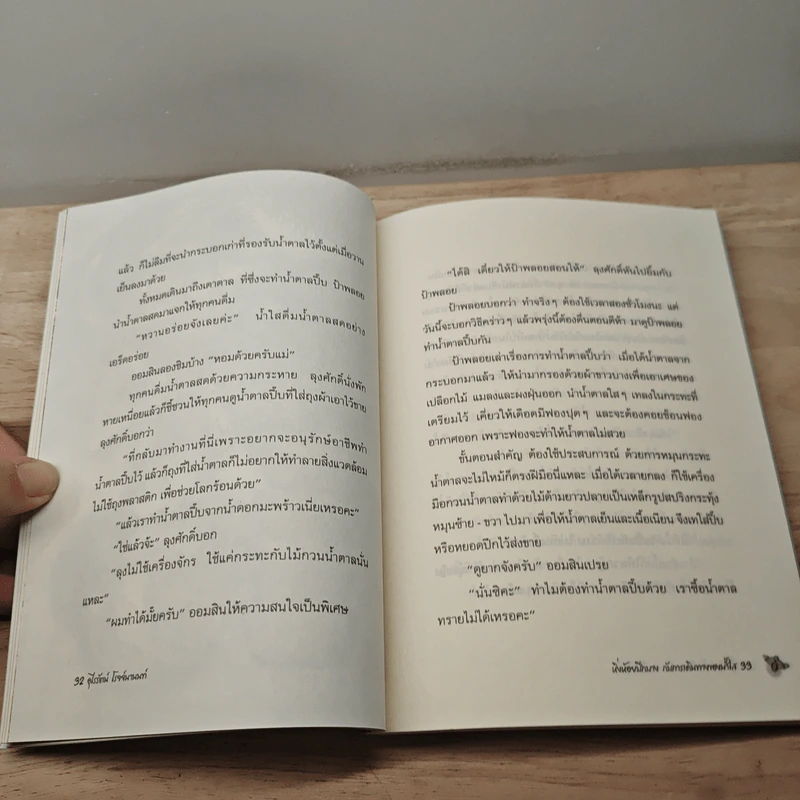 แล้ว ก็ไม่ลืมที่จะนำกระบอกเก่าที่รองรับน้ำตาลไว้ตั้งแต่เมื่อวาน
เย็นลงมาด้วย
ทั้งหมดเดินมาถึงเตาตาล ที่ซึ่งจะทำน้ำตาลปี๊บ ป้าพลอย
นำน้ำตาลสดมาแจกให้ทุกคนดื่ม
“หวานอร่อยจังเลยค่ะ” น้ำใสดื่มน้ำตาลสดอย่าง
เอร็ดอร่อย
ออมสินลองชิมบ้าง “หอมด้วยครับแม่”
ทุกคนดื่มน้ำตาลสดด้วยความกระหาย ลุงศักดิ์นั่งพัก
หายเหนื่อยแล้วก็ชี้ชวนให้ทุกคนดูน้ำตาลปี๊บที่ใส่ถุงผ้าเอาไว้ขาย
ลุงศักดิ์บอกว่า
“ที่กลับมาทำงานที่นี่เพราะอยากจะอนุรักษ์อาชีพทำ
น้ำตาลปี๊บไว้ แล้วก็ถุงที่ใส่น้ำตาลก็ไม่อยากให้ทำลายสิ่งแวดล้อม
ไม่ใช้ถุงพลาสติก เพื่อช่วยโลกร้อนด้วย”
“แล้วเราทำน้ำตาลปี๊บจากน้ำดอกมะพร้าวเนี่ยเหรอคะ”
“ใช่แล้วจ้ะ” ลุงศักดิ์บอก
“ลุงไม่ใช้เครื่องจักร ใช้แค่กระทะกับไม้กวนน้ำตาลนั่น
แหละ”
“ผมทำได้มั้ยครับ” ออมสินให้ความสนใจเป็นพิเศษ
32
“ได้สิ เดี๋ยวให้ป้าพลอยสอนให้” ลุงศักดิ์หันไปยิ้มกับ
ป้าพลอย
ป้าพลอยบอกว่า ทำจริงๆ ต้องใช้เวลาสองชั่วโมงนะ แต่
วันนี้จะบอกวิธีคร่าวๆ แล้วพรุ่งนี้ต้องตื่นตอนตีห้า มาดูป้าพลอย
ทำน้ำตาลปี๊บกัน
ป้าพลอยเล่าเรื่องการทำน้ำตาลปี๊บว่า เมื่อได้น้ำตาลจาก
กระบอกมาแล้ว ให้นำมากรองด้วยผ้าขาวบางเพื่อเอาเศษของ
เปลือกไม้ แมลงและผงฝุ่นออก นำน้ำตาลใสๆ เทลงในกระทะที่
เตรียมไว้ เคี่ยวให้เดือดมีฟองปุดๆ และจะต้องคอยช้อนฟอง
อากาศออก เพราะฟองจะทำให้น้ำตาลไม่สวย
ขั้นตอนสำคัญ ต้องใช้ประสบการณ์ ด้วยการหมุนกระทะ
น้ำตาลจะไม่ไหม้ก็ตรงฝีมือนี่แหละ เมื่อได้เวลายกลง ก็ใช้เครื่อง
มือกวนน้ำตาลทำด้วยไม้ด้ามยาวปลายเป็นเหล็กรูปสปริงกระทุ้ง
หมุนซ้าย - ขวา ไปมา เพื่อให้น้ำตาลเย็นและเนื้อเนียน จึงเทใส่ปี๊บ
หรือหยอดปึกไว้ส่งขาย
“ดูยากจังครับ” ออมสินเปรย
“นั่นซิคะ” ทำไมต้องทำน้ำตาลปี๊บด้วย เราซื้อน้ำตาล
ทรายไม่ได้เหรอคะ”
33